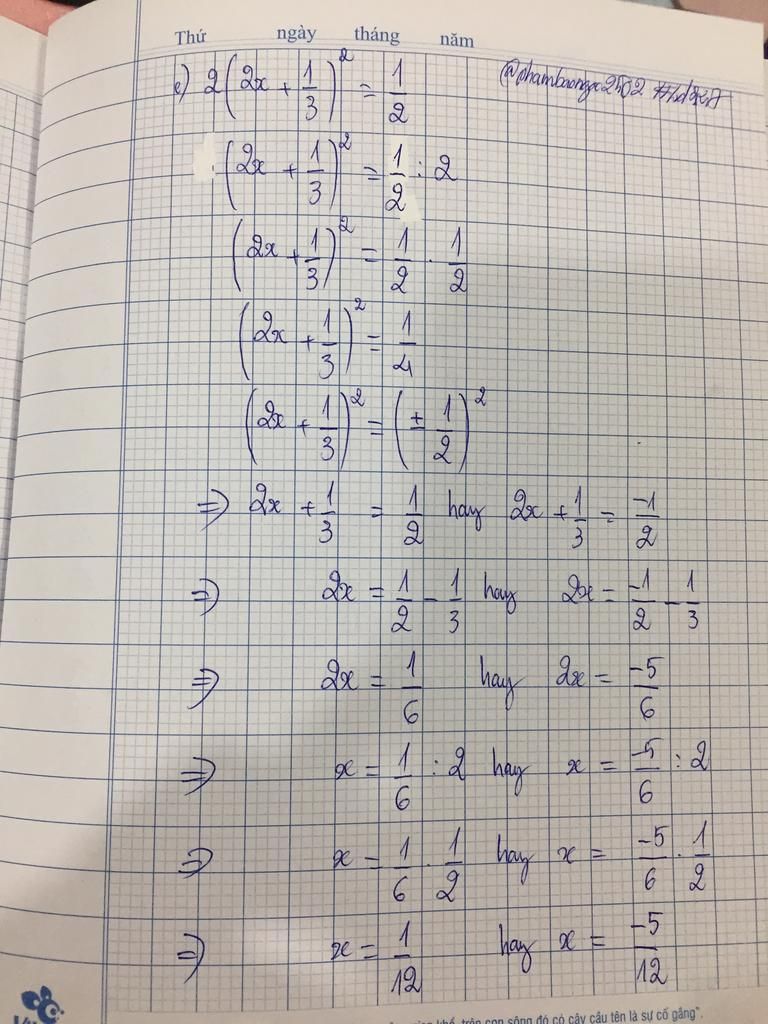 Thứ ngày tháng năm
@phambaongx2502
e) 2(2x + 1/3)² = 1/2
(2x + 1/3)² = 1/2 : 2
(2x + 1/3)² = 1/2 . 1/2
(2x + 1/3)² = 1/4
(2x + 1/3)² = (± 1/2)²
=> 2x + 1/3 = 1/2 hay 2x + 1/3 = -1/2
=> 2x = 1/2 - 1/3 hay 2x = -1/2 - 1/3
=> 2x = 1/6 hay 2x = -5/6
=> x = 1/6 : 2 hay x = -5/6 : 2
=> x = 1/6 . 1/2 hay x = -5/6 . 1/2
=> x = 1/12 hay x = -5/12
khổ, trên con sông đó có cây cầu tên là sự cố gắng".